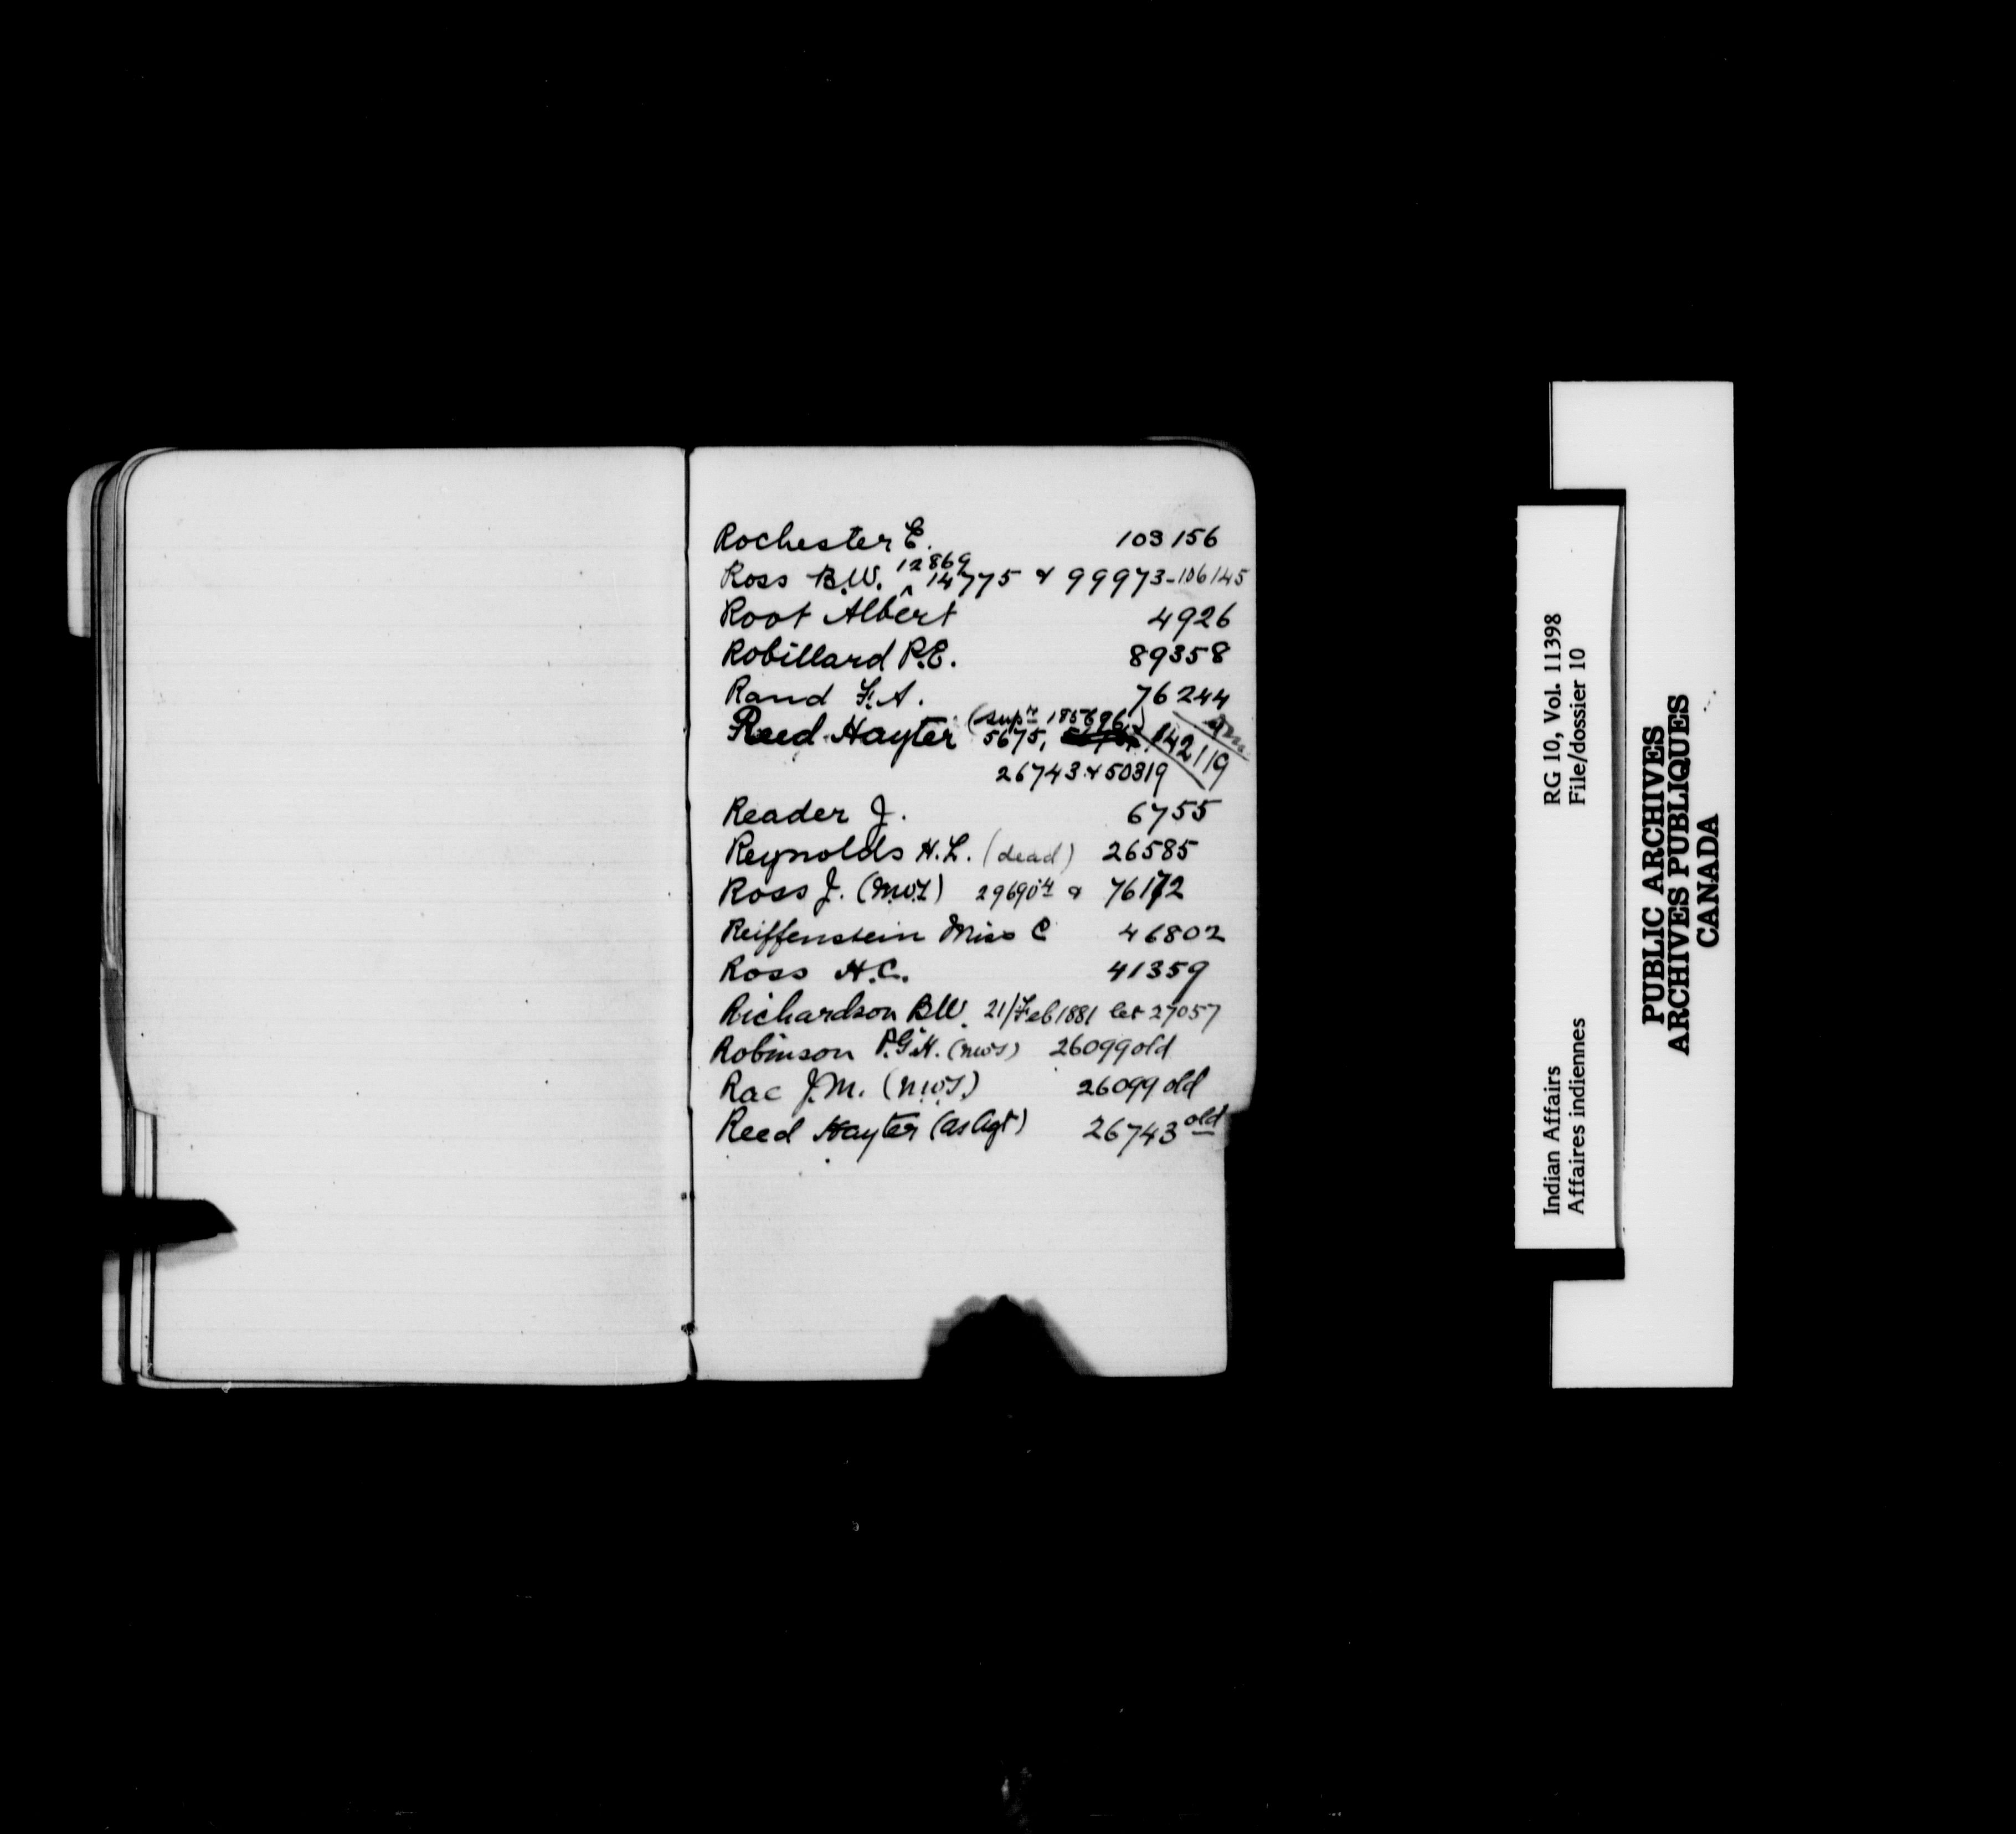 Rochester E. 103156
Ross B.W. 12869 ^ 14775 & 99973-106145
Root Albert 4926
Robillard P.E. 89358
Rand F.A. 76244
(supn 185696)
Reed Hayter 5675, 142119
26743 & 50319
Reader J. 6755
Reynolds H.L. (dead) 26585
Ross J. (N.W.T) 29690 & 76172
Reiffenstein Miss C 46802
Ross H.C. 41359
Richardson B.W. 21/Feb 1881 let 27057
Robinson P.G.H. (NWT) 26099 old
Rae J.M. (N.W.T.) 26099 old
Reed Hayter (as Agt) 26743 old
Indian Affairs RG 10, Vol. 11398
Affaires indiennes File/dossier 10
PUBLIC ARCHIVES
ARCHIVES PUBLIQUES
CANADA